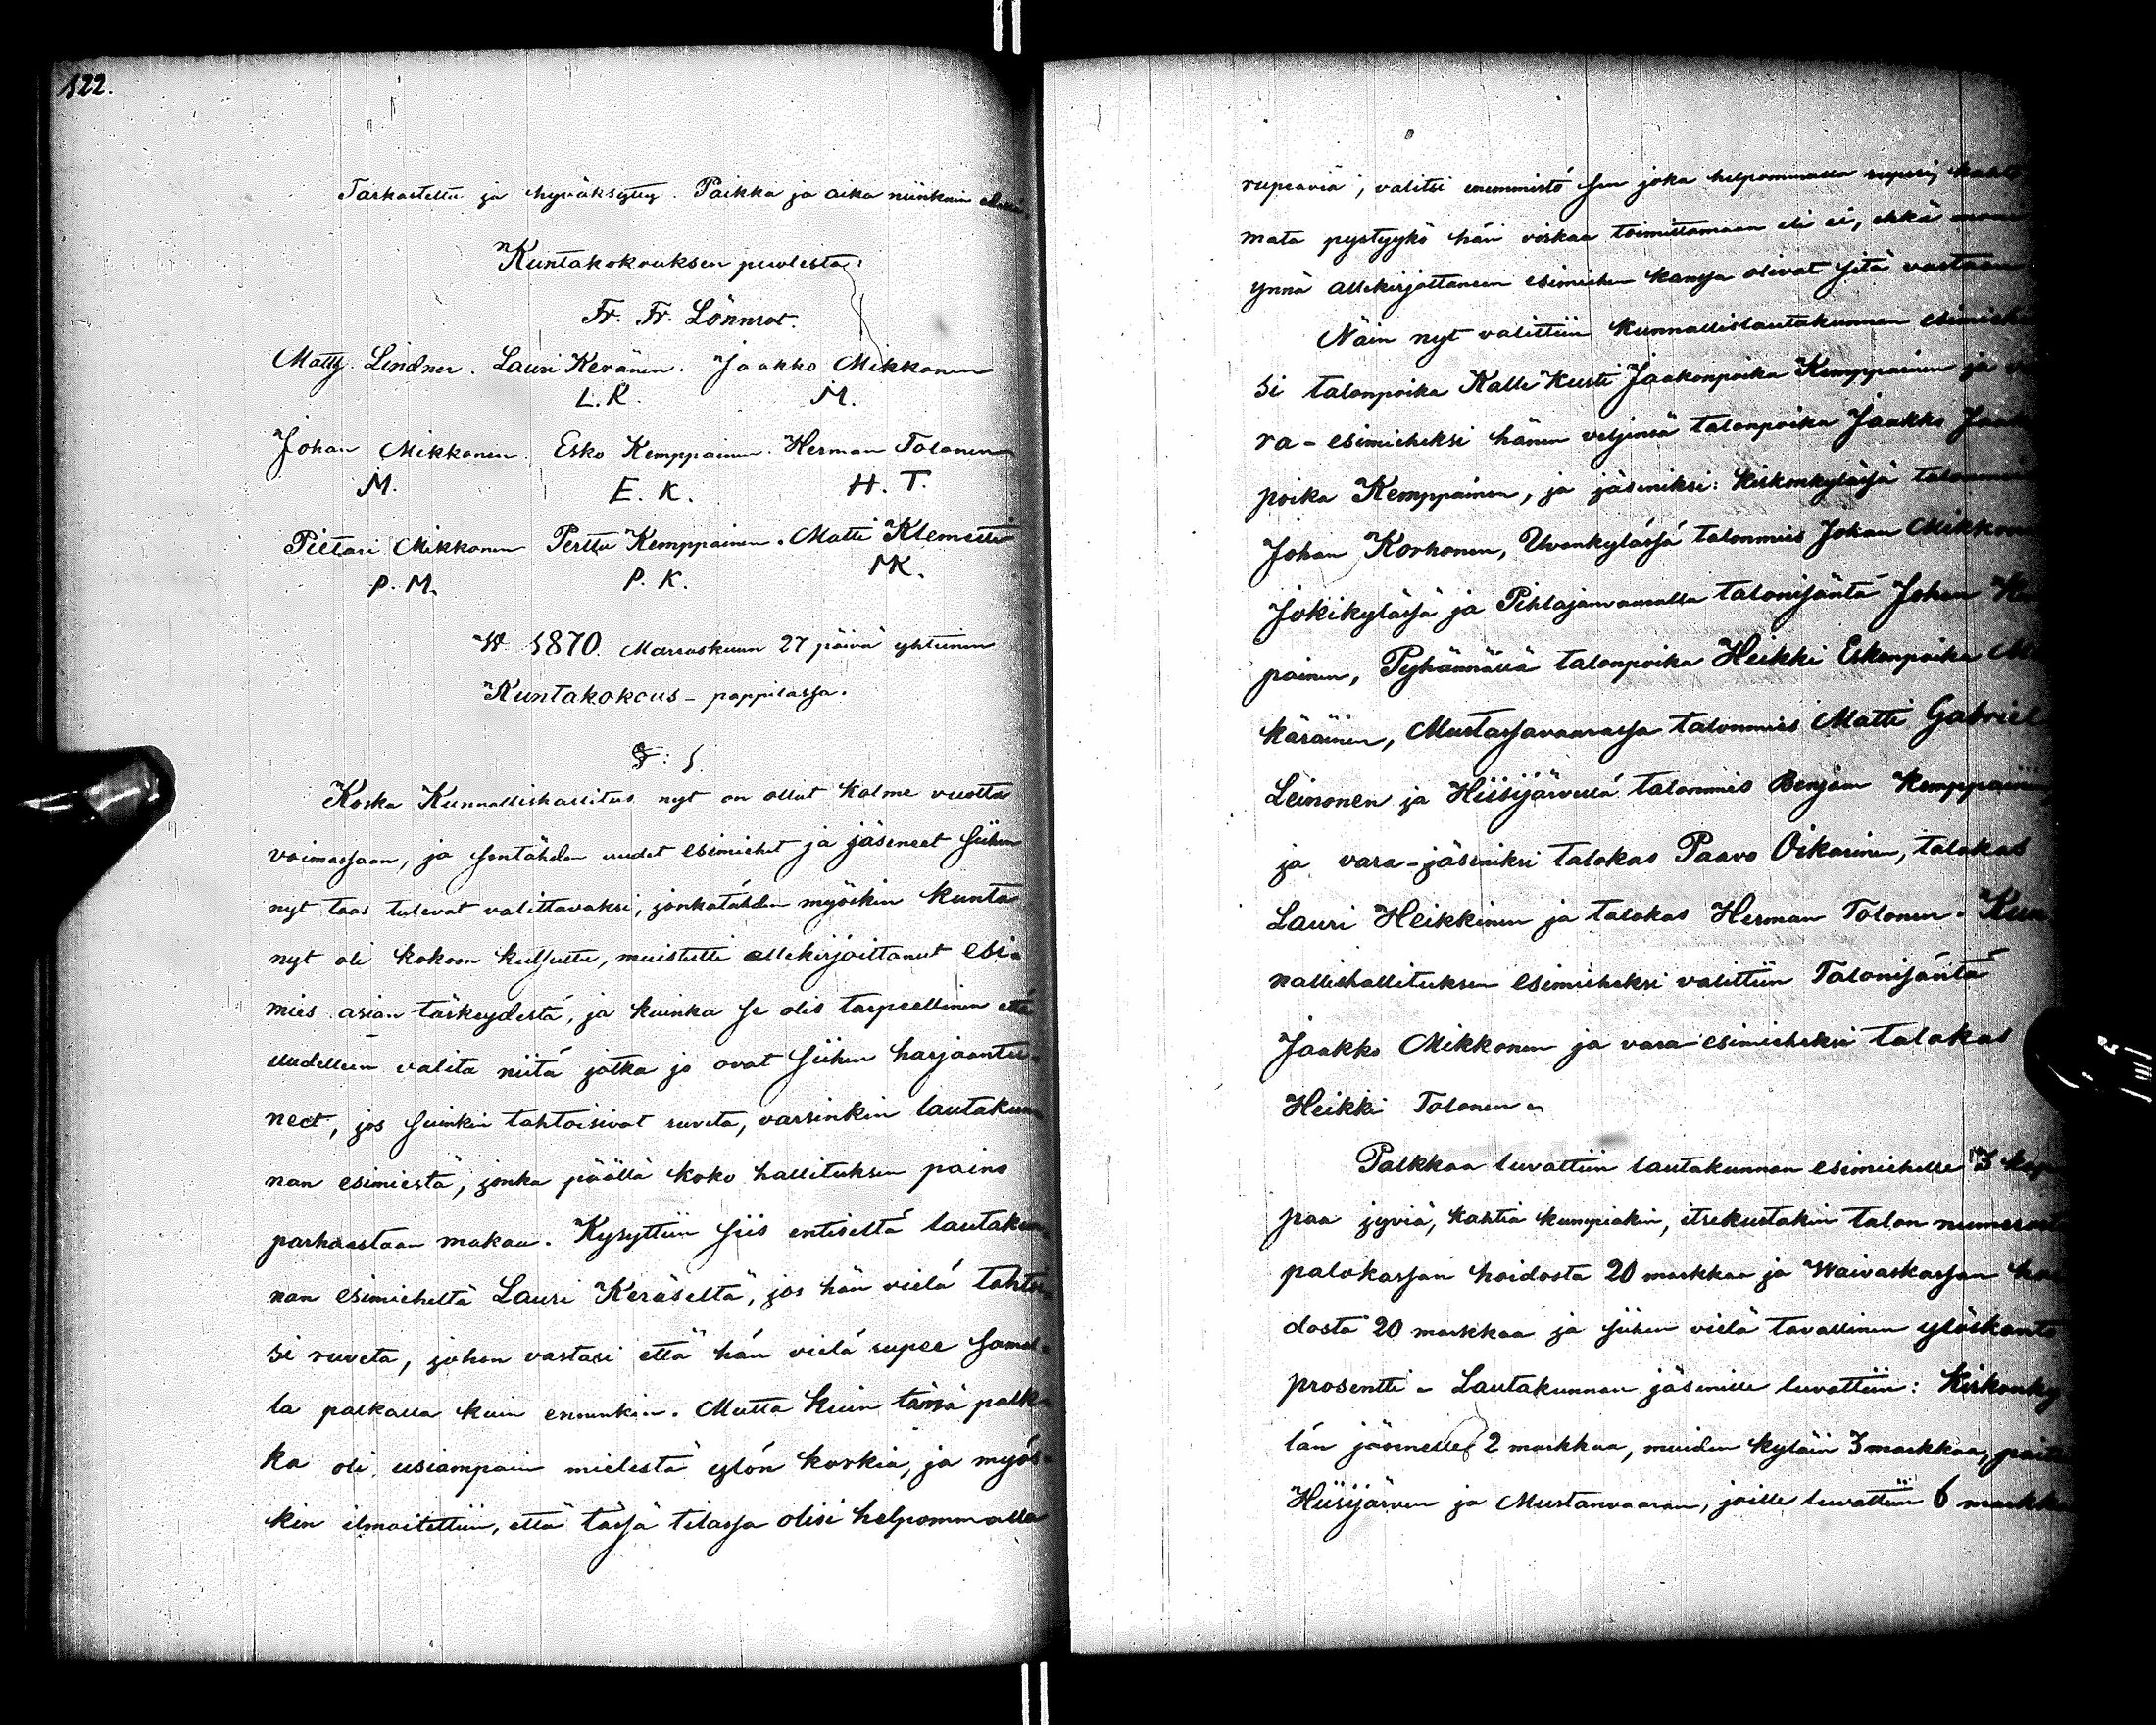 122.
Tarkastettu ja hyväksytty. Paikka ja aika niinkuin
Kuntakokouksen puolesta:
Fr. Fr. Lönnrot.
Matts. Lindner. Lauri Keränen. Jaakko Mikkonen
L. K. M.
Johan Mikkonen. Esko Kemppainen. Herman Tolonen
M. E. K. H. T.
Pietari Mikkonen Perttu Kemppainen. Matti Klemetti
P. M. P. K. MK.
W. 1870. Marraskuun 27 päivä yhteinen
Kuntakokous - pappilassa.
§: 1.
Koska Kunnallishallitus nyt on ollut kolme vuotta
voimassaan, ja sentähden uudet esimiehet ja jäseneet siihen
nyt taas tulevat valittavaksi, jonkatähden myöskin kunta
nyt oli kokoon kutsuttu, muistutti allekirjoittanut esi-
mies asian tärkeydestä, ja kuinka se olis tarpeellinen että
uudelleen valita niitä jotka jo ovat siihen harjaantu-
neet, jos suinkin tahtoisivat ruveta, varsinkin lautakun
nan esimiestä, jonka päällä koko hallituksen paino
parhaastaan makaa. Kysyttiin siis entiseltä lautakun
nan esimieheltä Lauri Keräseltä, jos hän vielä tahtoi
si ruveta, johon vastasi että hän vielä rupee samal-
la palkalla kuin ennenkin. Mutta kuin tämä palk-
ka oli usiampain mielestä ylön korkia, ja myös-
kin ilmoitettiin, että tässä tilassa olisi helpommalla
rupeavia, valitsi enemmistö sen joka helpommalla rupesi, katto
mata pystyykö hän virkaa toimittamaan eli ei, ehkä
ynnä allekirjoittaneen esimiehen kanssa olivat sitä vastaan
Näin nyt valittiin kunnallislautakunnan esimiehek
si talonpoika Kalle Kusti Jaakonpoika Kemppainen ja va
ra-esimieheksi hänen veljensä talonpoika Jaakko Jaak
poika Kemppainen, ja jäseniksi: Kirkonkylässä talonmies
Johan Korhonen, Uvankylässä talonmies Johan Mikkonen
Jokikylässä ja Pihlajanvaaralla talonisäntä Johan Kem
painen, Pyhännällä talonpoika Heikki Eskonpoika Mä
käräinen, Mustassavaarassa talonmies Matti Gabriel
Leinonen ja Hiisijärvellä talonmies Benjam Kemppainen
ja vara-jäseniksi talokas Paavo Oikarinen, talokas
Lauri Heikkinen ja talokas Herman Tolonen. Kun
nallishallituksen esimieheksi valittiin Talonisäntä
Jaakko Mikkonen ja vara-esimieheksi talokas
Heikki Tolonen.
Palkkaa luvattiin lautakunnan esimiehelle 3 kap
paa jyviä, kahtia kumpiakin, itsekustakin talon numerosta
palokassan hoidosta 20 markkaa ja Waivaskassan hoi
dosta 20 markkaa ja siihen vielä tavallinen ylöskanto
prosentti. Lautakunnan jäsenille luvattiin: Kirkonky
län jäsenelle 2 markkaa, muiden kyläin 3 markkaa, paitsi
Hiisijärven ja Mustanvaaran, joille luvattiin 6 markkaa